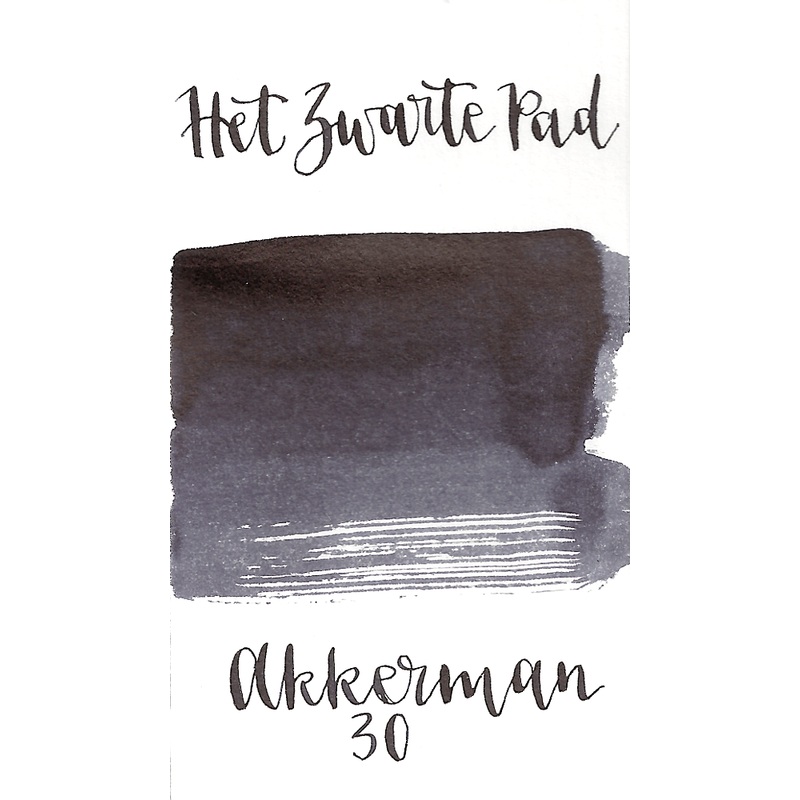 Het Zwarte Pad
Akkerman
30